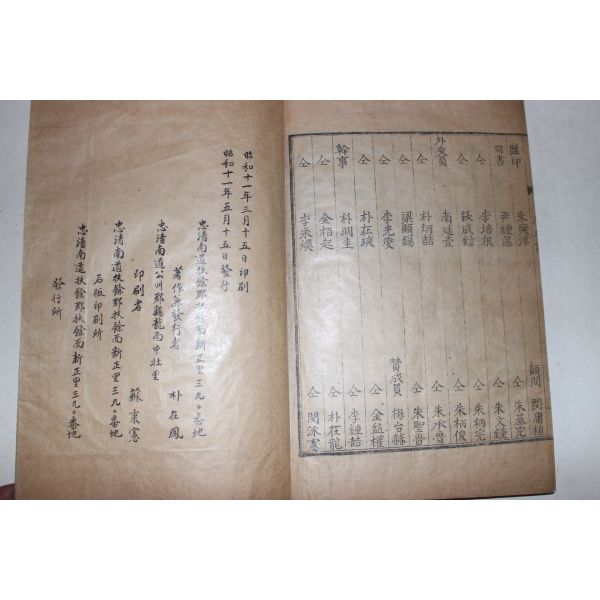 監印 朱奭淳
司書 尹鍾蕙
仝 李培根
仝 張成銓
外交員 南廷壹
仝 朴炳喆
仝 梁顯錫
仝 李光慶
仝 朴在琰
幹事 朴明圭
仝 金柏起
仝 李承煥
顧問 閔庸植
仝 朱基完
仝 朱文鍾
仝 朱炳完
仝 朱柄俊
仝 朱承曾
仝 朱聖曾
贊成員 楊台赫
仝 金益權
仝 李鍾喆
仝 朴在龍
仝 閔泳憲
昭和十一年三月十五日印刷
昭和十一年五月十五日發行
忠清南道扶餘郡扶餘面新正里三九〇番地
著作兼發行者 朴在鳳
忠清南道公州郡鷄龍面中壯里
印刷者 蘇秉憲
忠清南道扶餘郡扶餘面新正里三九〇番地
石版印刷所
忠清南道扶餘郡扶餘面新正里三九〇番地
發行所